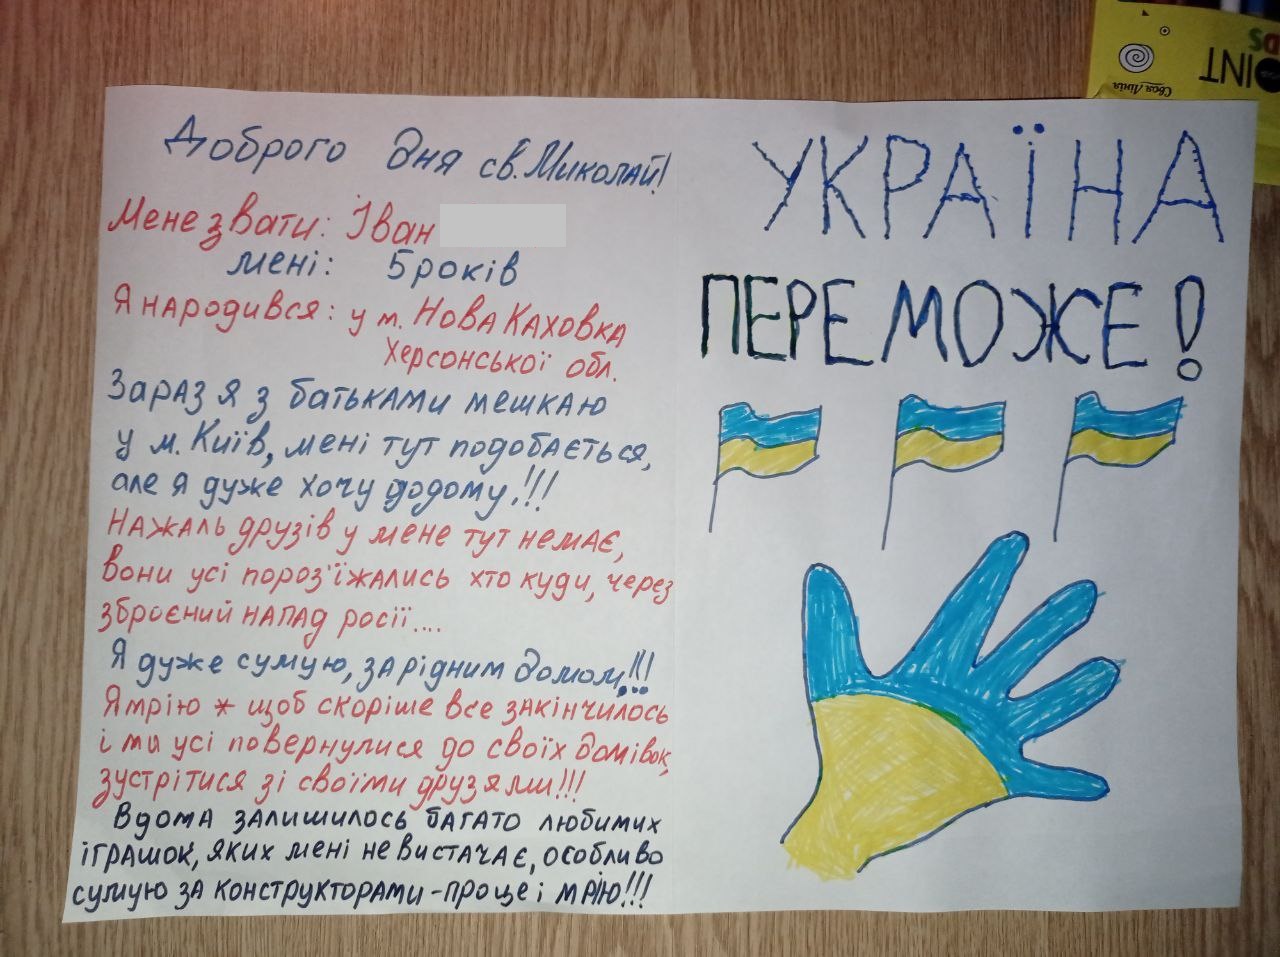 Доброго дня св. Миколай!
Мене звати: Іван
мені: 5 років
Я народився: у м. Нова Каховка
Херсонської обл.
Зараз я з батьками мешкаю
у м. Київ, мені тут подобається,
але я дуже хочу додому!!!
Нажаль друзів у мене тут немає,
вони усі пороз'їжались хто куди, через
зброєний напад росії....
Я дуже сумую, за рідним домом!!!
Я мрію * щоб скоріше все закінчилось
і ми усі повернулися до своїх домівок,
зустрітися зі своїми друзями!!!
Вдома залишилось багато любимих
іграшок, яких мені не вистачає, особливо
сумую за конструкторами - про це і мрію!!!
УКРАЇНА
ПЕРЕМОЖЕ!
POINT
Своя Лінія